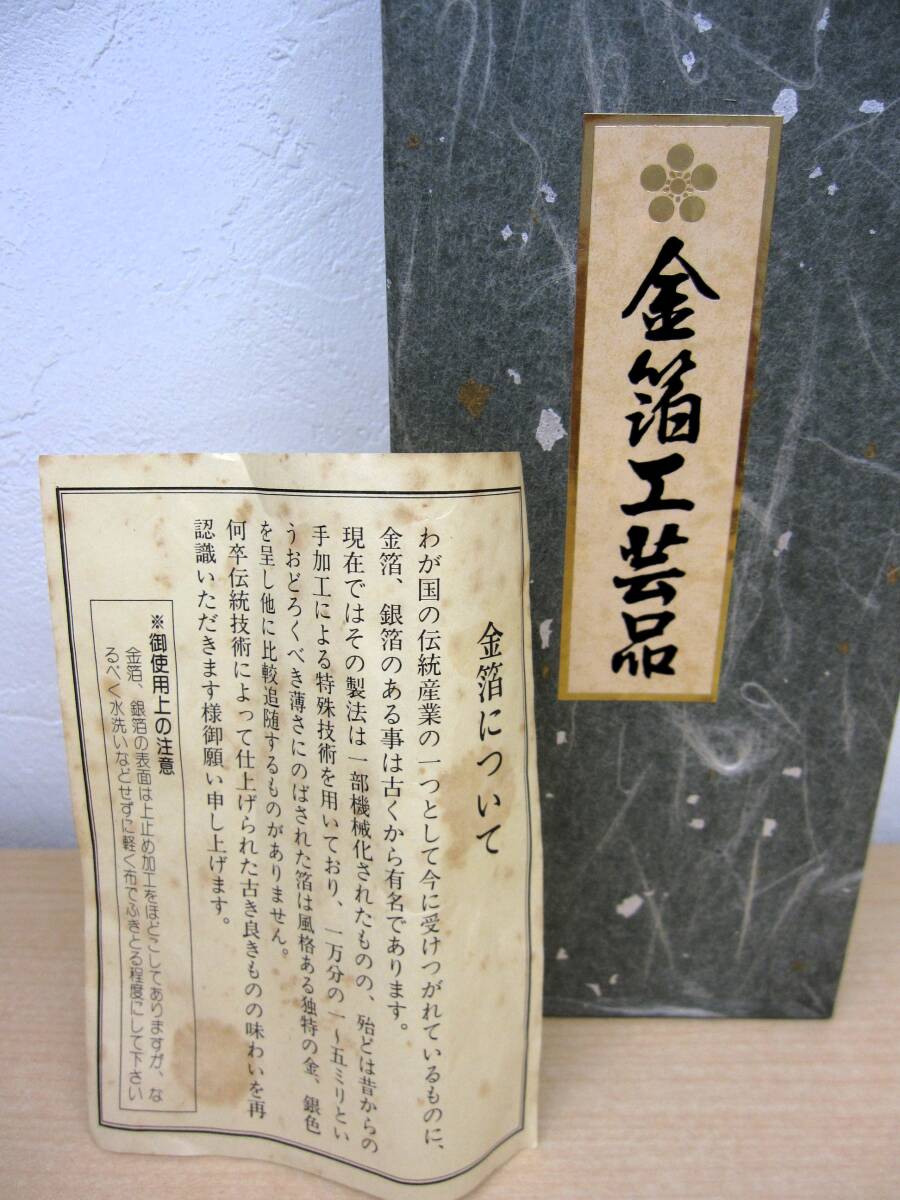 金箔工芸品
金箔について
わが国の伝統産業の一つとして今に受けつがれているものに、
金箔、銀箔のある事は古くから有名であります。
現在ではその製法は一部機械化されたものの、殆どは昔からの
手加工による特殊技術を用いており、一万分の一～五ミリとい
うおどろくべき薄さにのばされた箔は風格ある独特の金、銀色
を呈し他に比較追随するものがありません。
何卒伝統技術によって仕上げられた古き良きものの味わいを再
認識いただきます様御願い申し上げます。
※御使用上の注意
金箔、銀箔の表面は上止め加工をほどこしてありますが、な
るべく水洗いなどせずに軽く布でふきとる程度にして下さい